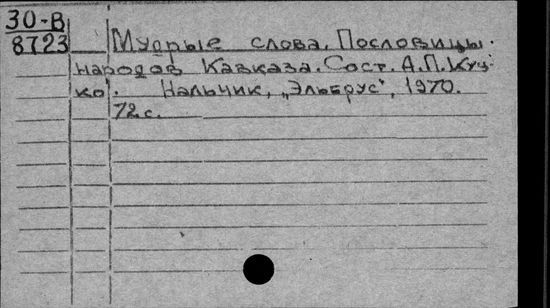 30-В
8723
Мудрые слова. Пословицы
народов Кавказа. Сост. А.П. Куц-
ко. Нальчик, „Эльбрус", 1970.
72 с.